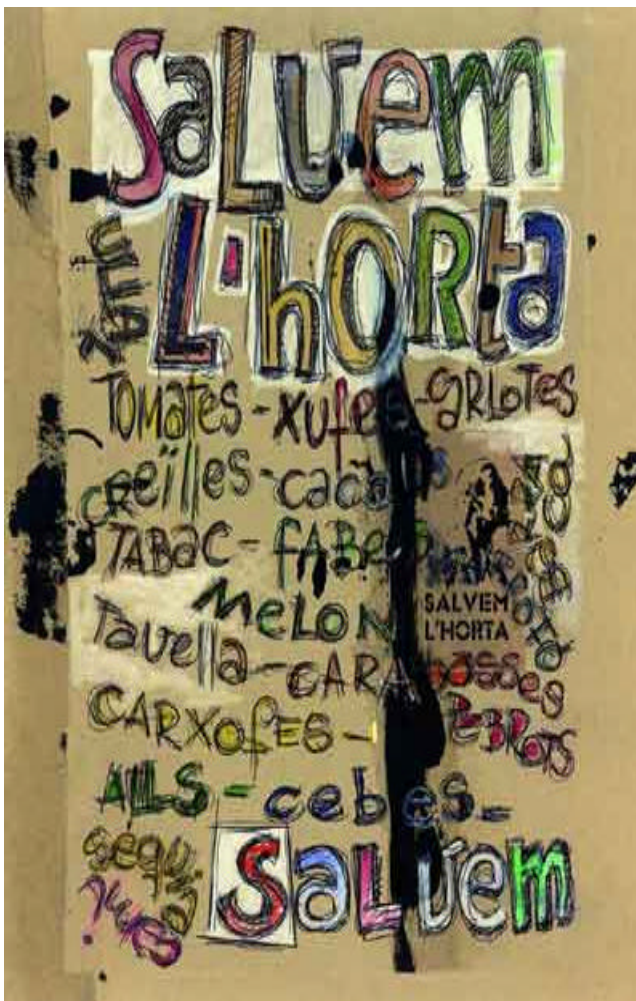 SaLvem
L'hORta
TOMates - xufes - gRLOTES
CReïlles - caca
TABaC - fABes
MeLON
SALVEM
L'HORTA
Tavella - CARABASSES
CARXOfES - PEBROTS
AILS - cebes -
SaLvem